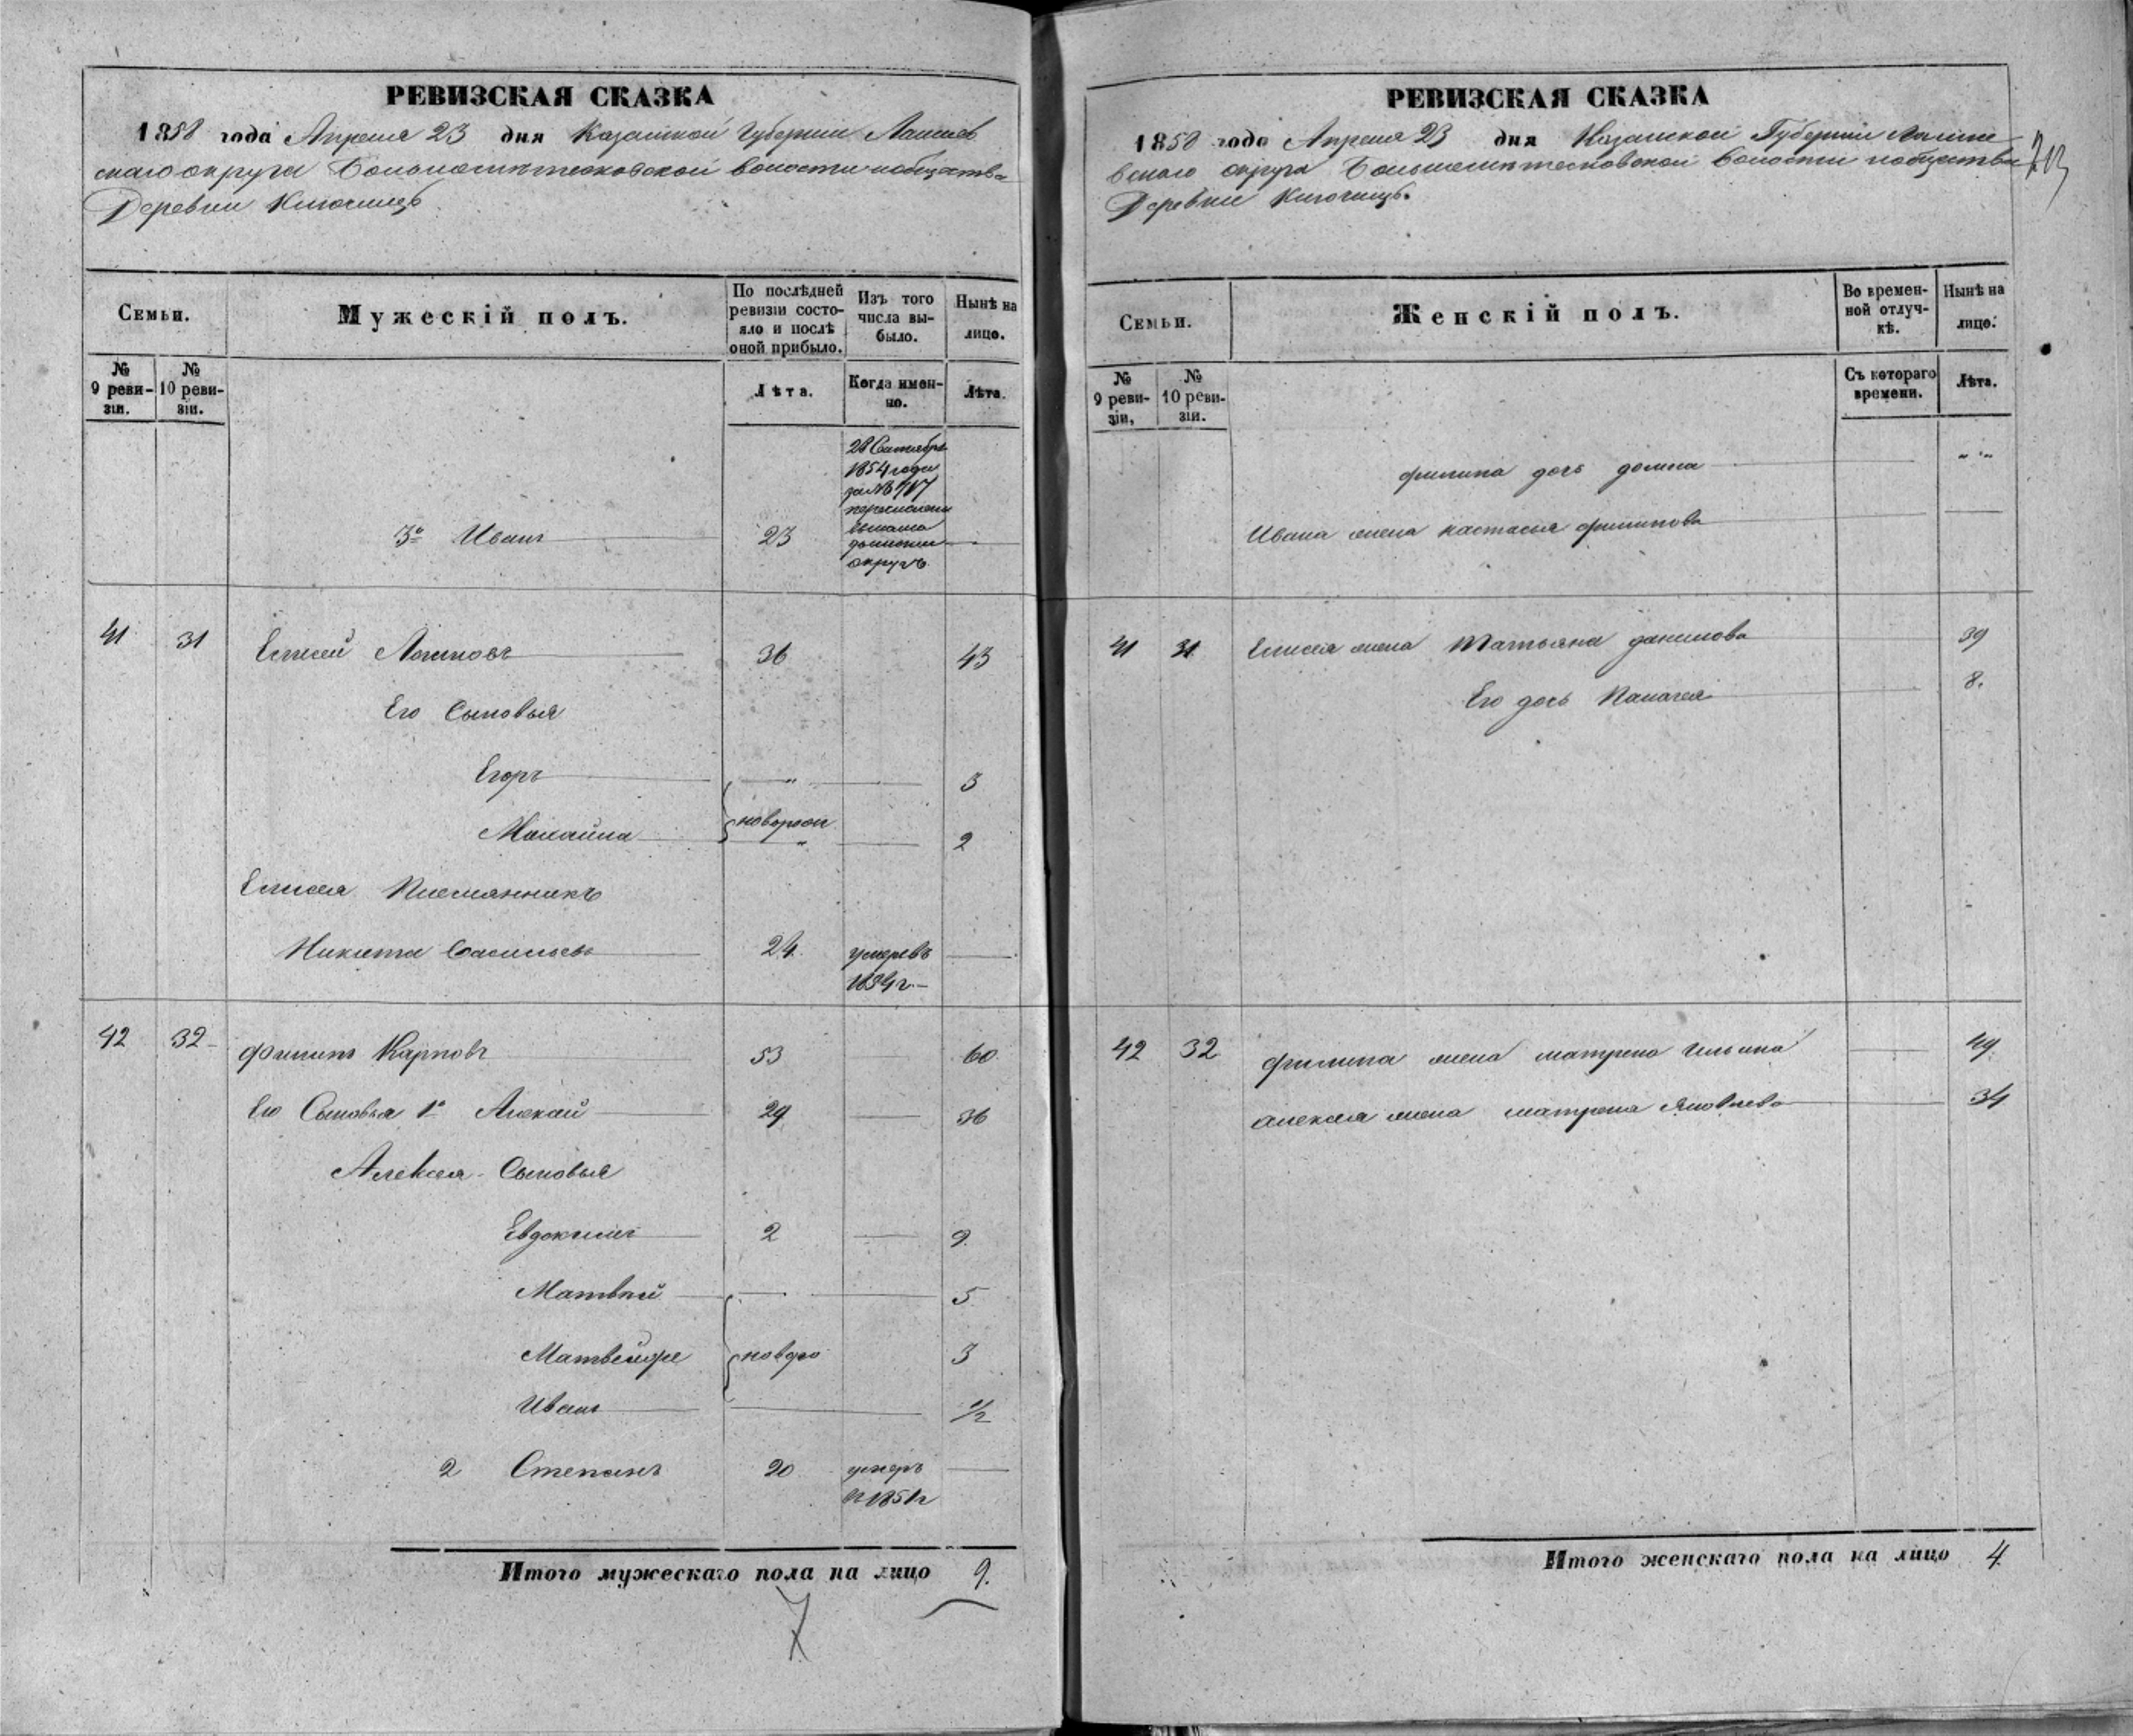 РЕВИЗСКАЯ СКАЗКА
1858 года Апреля 23 дня Казанской Губернии Лаишев
скаго округа волости и общества
Деревни Ключищь
Семьи.
Мужескій полъ.
По послѣдней ревизіи состояло и послѣ оной прибыло.
Изъ того числа выбыло.
Нынѣ на лицо.
№ 9 ревизіи.
№ 10 ревизіи.
Лѣта.
Когда именно.
Лѣта.
28 Сентября
1854 года
за №
3е Иванъ 23
округъ
41 31 Елисей Логиновъ 36 43
Его Сыновья
Егоръ 3
Михайла новорож 2
Елисея Племянникъ
Никита Васильевъ 24 умеръ въ
1854 г.
42 32 Филипъ Карповъ 53 60
Его Сыновья 1й Алексей 29 36
Алексея Сыновья
Евдокимъ 2 9
Матвей 5
Матвейже новоро 3
Иванъ 1/2
2 Степанъ 20 умеръ
въ 1851г
Итого мужескаго пола на лицо 9.
7
РЕВИЗСКАЯ СКАЗКА
1858 года Апреля 23 дня Казанской Губерніи Лаише
вскаго округа волости и общества
Деревни Ключищь.
213
Семьи.
Женскій полъ.
Во временной отлучкѣ.
Нынѣ на лицо.
№ 9 ревизіи,
№ 10 ревизіи.
Съ котораго времени.
Лѣта.
филипа дочь домна
Ивана жена настасья филипова
41 31 Елисея жена Татьяна данилова 39
Его дочь Палагея 8.
42 32 филипа жена матрена Ильина 49
алексея жена матрена Яковлева 34
Итого женскаго пола на лицо 4